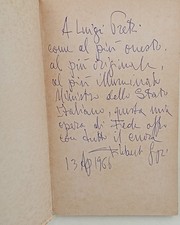 A Luigi Preti
come al più onesto,
al più originale,
al più illuminato
Ministro dello Stato
Italiano, questa mia
opera di Fede
con tutto il cuore
13 Ap 1968